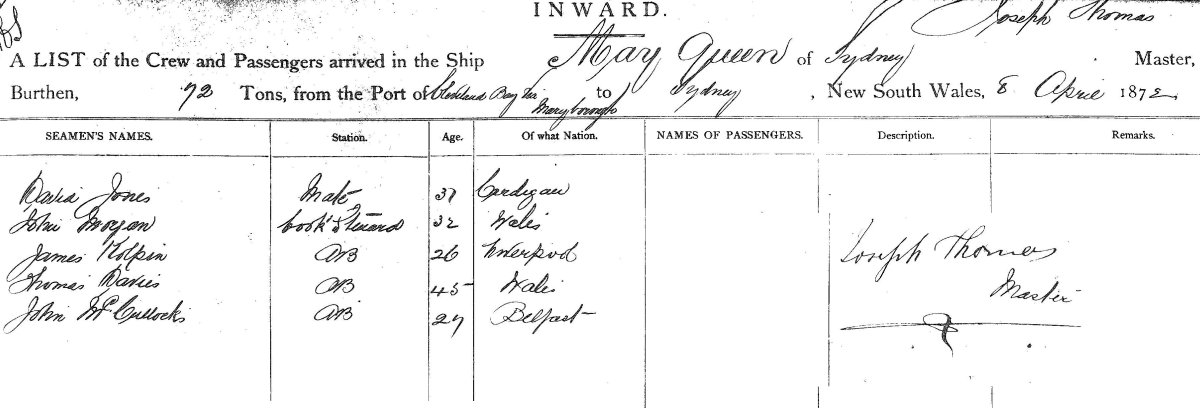 INWARD.
Joseph Thomas
A LIST of the Crew and Passengers arrived in the Ship May Queen of Sydney Master,
Burthen, 72 Tons, from the Port of Cleveland Bay via Maryborough to Sydney, New South Wales, 8 April 1872
SEAMEN'S NAMES. Station. Age. Of what Nation. NAMES OF PASSENGERS. Description. Remarks.
David Jones Mate 37 Cardigan
John Morgan Cook & Steward 32 Wales
James Kolpin AB 26 Liverpool
Thomas Davies AB 45 Wales
John McCullocks AB 27 Belfast
Joseph Thomas
Master